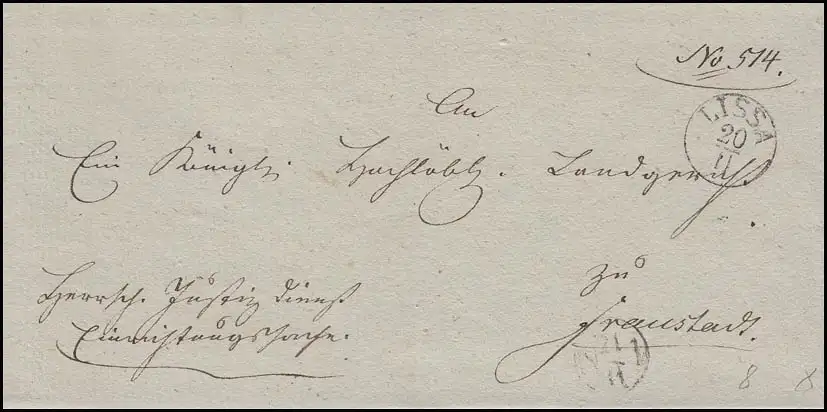 No. 514.
LISSA
20
11
An
Ein Königl. Hochlöbl. Landgericht
zu
Fraustadt.
Herrsch. Justiz dienst
Einrichtungssache.
21
11
8 8